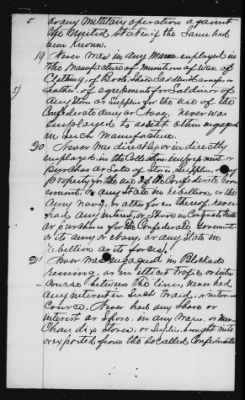 or any Military operation against
the United States if the Same had
been known.
19 Never was in any Manner employed in
the Manufacture of munitions of War or
Clothing, of Boots, Shoes, Saddles, Harness,
Leather, of equipments for Soldiers or of
any Stores or Supplies for the use of the
Confederate Army or Navy. Never was
employed to assist others engaged
in Such Manufacture.
20 Never was directly or indirectly
employed in the Collection
purchase or Sale of Stores Supplies or any
Property for the use of the Confederate Gov-
ernment, or any State in rebellion, or the
Army, navy, or other for thereof. Never
had any interest, or Share in Contracts with
or purchases for the Confederate Government
or its army or navy, or any State in
rebellion or its forces.
21 Never was engaged in Blockade
running, or in illicit Trafic or inter-
Course between the lines, never had
any interest in Such Traid, or inter-
Course. Never had any Share or
interest or Share in any Wares, or Mer-
Chandix Stores, or Supplies, brought into
or exported from the so called Confederate